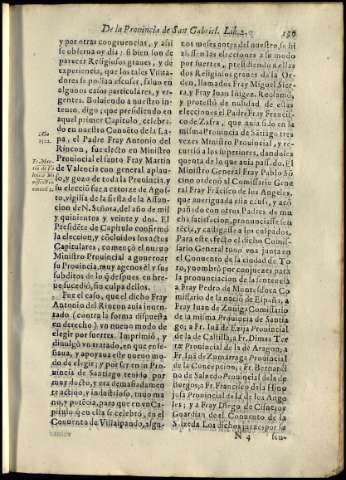 De la Provincia de San Gabriel. Lib. 2.
y por otras congruencias, y assi
se observa oy dia; si bien son de
pareçer Religiosos graves, y de
experiencia, que los tales Visita
dores se pudieran escusar, salvo en
algunos casos particulares, y ur-
gentes. Bolviendo a nuestro in-
tento, digo; que presidiendo en
aquel primer Capitulo, celebra-
do en nuestro Convẽto de la La-
pa, el Padre Fray Antonio del
Rincon, fue electo en Ministro
Provincial el santo Fray Martin
de Valencia con general aplau-
so, y gozo de toda la Provincia, y
su elecciõ fue a catorze de Agos-
to, vigilia de la fiesta de la Assun-
cion de N. Señora, del año de mil
y quinientos y veinte y dos. El
Presidẽte de Capitulo confirmó
la eleccion, y cõcluidos los actos
Capitulares, començó el nuevo
Ministro Provincial a governar
su Provincia, muy ageno él y sus
subditos de lo q̃ despues en bre-
ve sucedió, sin culpa dellos.
Fue el caso, que el dicho Fray
Antonio del Rincon avia inven-
tado (contra la forma dispuesta
en derecho) un nuevo modo de
elegir por suertes. Imprimió, y
divulgó un tratado, en que ense-
ñava, y apoyava este nuevo mo-
do de elegir; y por ser en la Pro-
vincia de Santiago tenido por
muy docto, y era demasiadamen
te activo, industrioso, tuvo ma-
no, y potẽcia, para que en un Ca-
pitulo q̃ en ella se celebró, en el
Convento de Villalpando, algu-
nos meses antes del nuestro, se hi
ziessen las elecciones a su modo
por suertes, presidiendo en ellas
dos Religiosos graves de la Or-
den, llamados Fray Miguel Sier-
ra, y Fray Juan Iñigez. Reclamó,
y protestó de nulidad de dichas
elecciones el Padre Fray Francis-
co de Zafra, que avia sido en la
misma Provincia de Sãtiago tres
vezes Ministro Provincial, y re-
currió a los superiores, dandoles
quenta de lo que avia passado. El
Ministro General Fray Pablo Sõ
cino ordenó al Comissario Gene
ral Fray Frãcisco de los Angeles,
que averiguasse la verdad, y acõ
pañado con otros Padres de mu
cha satisfacion, pronunciasse sen-
tẽcia, y castigasse a los culpados.
Para este efecto el dicho Comis-
sario General tuvo una junta en
el Convento de la ciudad de To
ro, y nombró por conjueces para
la pronunciacion de la sentencia
a Fray Pedro de Montesdoca Co
missario de la nacion de España, a
Fray Juan de Zuñiga Comissario
de la misma Provincia de Santia
go; a Fr. Luis de Ezija Provincial
de la de Castilla; a Fr. Dimas Ter-
rẽ Provincial de la de Aragon; a
Fr. Juã de Zumarraga Provincial
de la Concepcion; a Fr. Bernar-
dino de Salzedo Provincial de la de
Burgos; a Fr. Francisco de la Hino
josa Provincial de la de los Ange
les; y a Fray Diego de Cisneros
Guardian del Convento de la
N 4